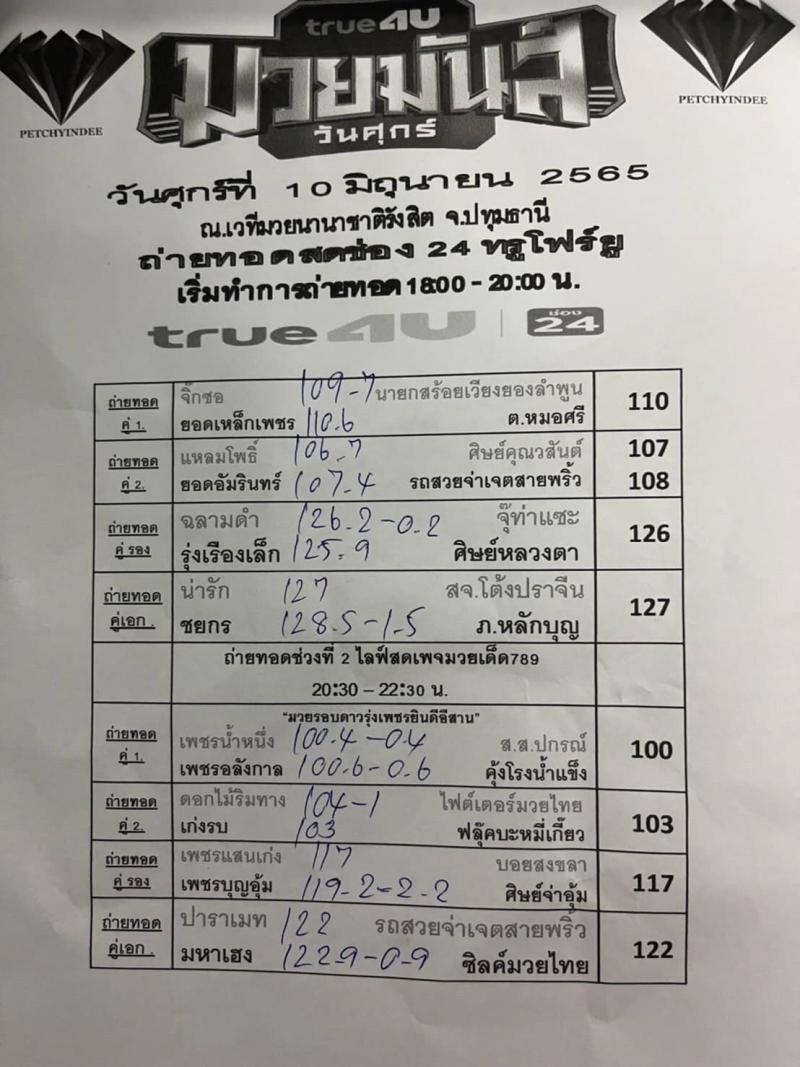 true4U
มวยมันส์
วันศุกร์
PETCHYINDEE
PETCHYINDEE
วันศุกร์ที่ 10 มิถุนายน 2565
ณ.เวทีมวยนานาชาติรังสิต จ.ปทุมธานี
ถ่ายทอดสดช่อง 24 ทรูโฟร์ยู
เริ่มทำการถ่ายทอด 18:00 - 20:00 น.
true4U ช่อง 24
ถ่ายทอด คู่ 1. จิ๊กซอ 109-7 นายกสร้อยเวียงยองลำพูน 110
ยอดเหล็กเพชร 110.6 ต.หมอศรี
ถ่ายทอด คู่ 2. แหลมโพธิ์ 106-7 ศิษย์คุณวสันต์ 107
ยอดอัมรินทร์ 107-4 รถสวยจ่าเจตสายพริ้ว 108
ถ่ายทอด คู่ รอง ฉลามดำ 126-2-0.2 จุ๊ท่าแซะ 126
รุ่งเรืองเล็ก 125.9 ศิษย์หลวงตา
ถ่ายทอด คู่เอก . น่ารัก 127 สจ.โต้งปราจีน 127
ชยกร 128.5-1.5 ภ.หลักบุญ
ถ่ายทอดช่วงที่ 2 ไลฟ์สดเพจมวยเด็ด789
20:30 – 22:30 น.
"มวยรอบดาวรุ่งเพชรยินดีอีสาน"
ถ่ายทอด คู่ 1. เพชรน้ำหนึ่ง 100.4-0.4 ส.ส.ปกรณ์ 100
เพชรอลังกาล 100.6-0.6 คุ้งโรงน้ำแข็ง
ถ่ายทอด คู่ 2. ดอกไม้ริมทาง 104-1 ไฟต์เตอร์มวยไทย 103
เก่งรบ 103 ฟลุ๊คบะหมี่เกี๊ยว
ถ่ายทอด คู่ รอง เพชรแสนเก่ง 117 บอยสงขลา 117
เพชรบุญอุ้ม 119-2-2-2 ศิษย์จ่าอุ้ม
ถ่ายทอด คู่เอก . ปาราเมท 122 รถสวยจ่าเจตสายพริ้ว 122
มหาเฮง 122.9-0-9 ซิลค์มวยไทย